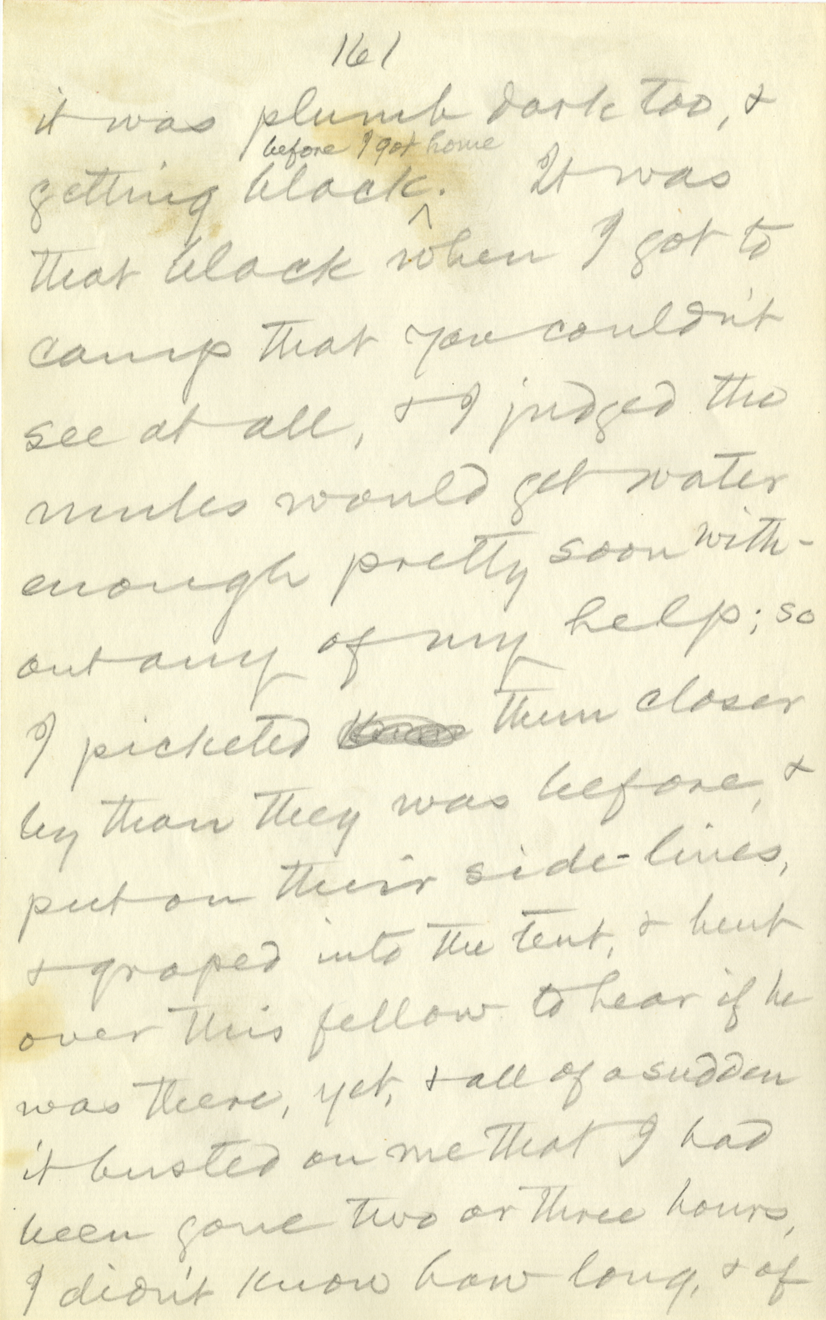 161
it was plumb dark too, &
before I got home
getting black. It was
that black when I got to
camp that you couldn't
see at all, & I judged the
mules would get water
enough pretty soon with-
out any of my help; so
I picketed them closer
by than they was before, &
put on their side-lines,
& groped into the tent, & bent
over this fellow to hear if he
was there, yet, & all of a sudden
it busted on me that I had
been gone two or three hours,
I didn't know how long, & of